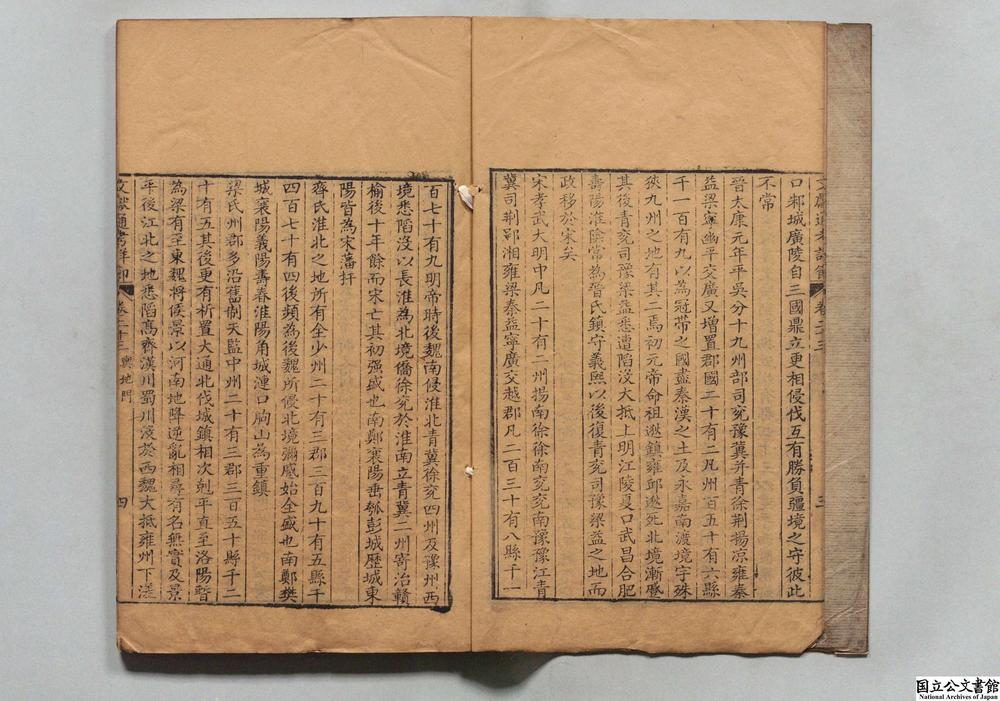 口邾城廣陵自三國鼎立更相侵伐互有勝負疆境之守彼此
不常
晉太康元年平吳分十九州部司兗豫冀并青徐荆揚凉雍秦
益梁寧幽平交廣又增置郡國二十有二凡州百五十有六縣
千一百有九以為冠帶之國盡秦漢之土及永嘉南渡境宇殊
狹九州之地有其二焉初元帝命祖逖鎮雍邱逖死北境漸蹙
其後青兗司豫梁益悉遭陷沒大抵上明江陵夏口武昌合肥
壽陽淮陰常為晉氏鎮守義熙以後復青兗司豫梁益之地而
政移於宋矣
宋孝武大明中凡二十有二州揚南徐徐南兗兗南豫豫江青
冀司荆郢湘雍梁秦益寧廣交越郡凡二百三十有八縣千一
百七十有九明帝時後魏南侵淮北青冀徐兗四州及豫州西
境悉陷沒以長淮為北境僑徐兗於淮南立青冀二州寄治贛
榆後十年餘而宋亡其初强盛也南鄭襄陽垂瓠彭城歷城東
陽皆為宋藩扞
齊氏淮北之地所有全少州二十有三郡三百九十有五縣千
四百七十有四後頻為後魏所侵北境彌蹙始全盛也南鄭樊
城襄陽義陽壽春淮陽角城漣口朐山為重鎮
梁氏州郡多沿舊制天監中州二十有三郡三百五十縣千二
十有五其後更有析置大通北伐城鎮相次剋平直至洛陽暫
為梁有至東魏將侯景以河南地降逆亂相尋有名無實及景
平後江北之地悉陷高齊漢川蜀川沒於西魏大抵雍州下溠
文獻通考詳節
卷二十三
輿地門
四